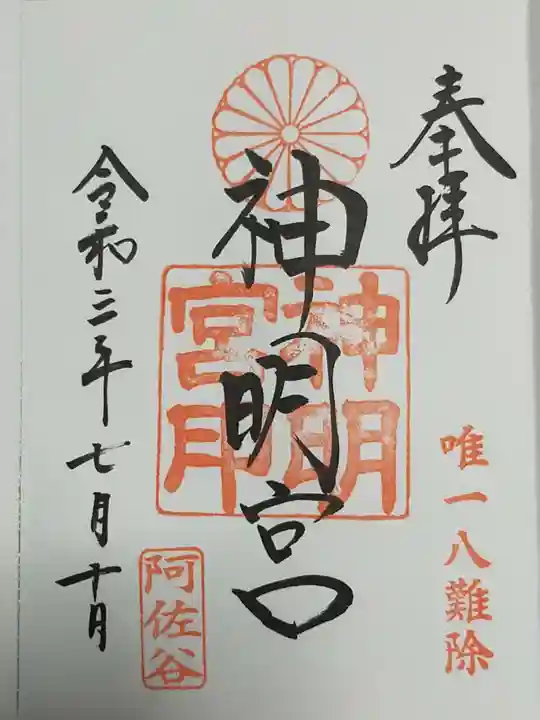 奉拝
唯一八難除
神明宮
神明宮印
令和三年七月十日
阿佐谷